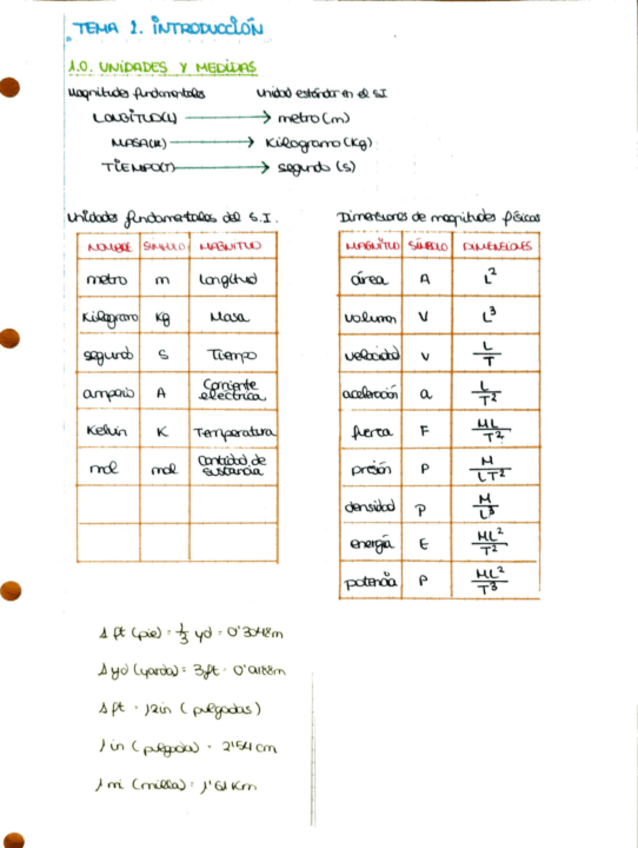 TEMA 1. INTRODUCCIÓN
1.0. UNIDADES Y MEDIDAS
Magnitudes fundamentales Unidad estándar en el S.I
LONGITUD(L) → metro (m)
MASA(M) → Kilogramo (Kg)
TIEMPO(T) → segundo (s)
Unidades fundamentales del S.I.
NOMBRE SÍMBOLO MAGNITUD
metro m Longitud
Kilogramo Kg Masa
segundo s Tiempo
amperio A Corriente eléctrica
Kelvin K Temperatura
mol mol Cantidad de sustancia
Dimensiones de magnitudes físicas
MAGNITUD SÍMBOLO DIMENSIONES
área A L²
volumen V L³
velocidad v L/T
aceleración a L/T²
fuerza F ML/T²
presión P M/LT²
densidad ρ M/L³
energía E ML²/T²
potencia P ML²/T³
1 ft (pie) = 1/3 yd = 0'3048m
1 yd (yarda) = 3ft =
1 ft = 12in (pulgadas)
1 in (pulgada) = 2'54 cm
1 mi (milla) = 1'61 Km